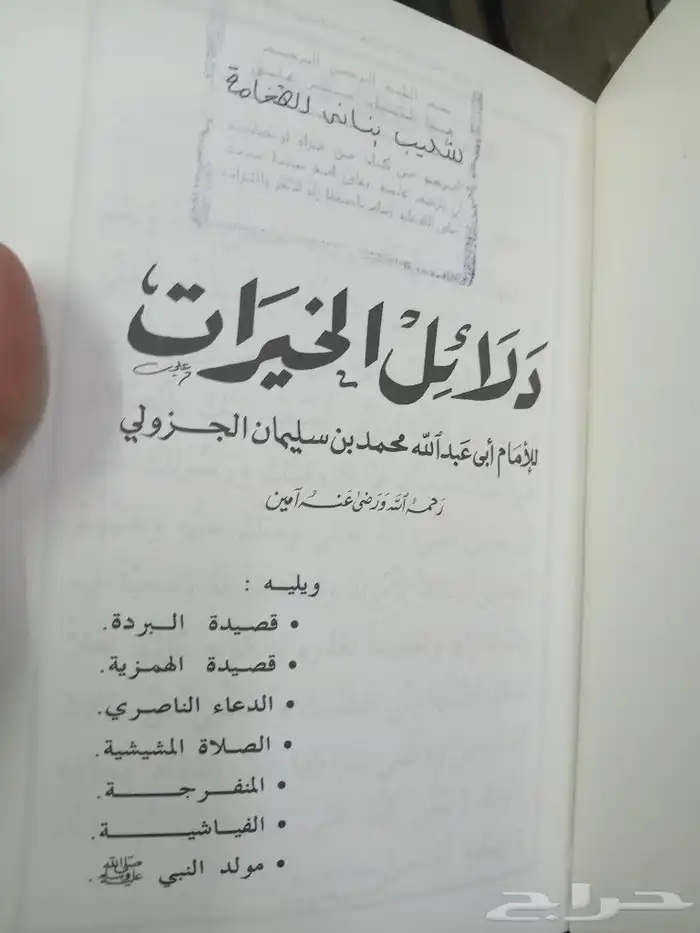 شعيب بناني الفخامة
دَلَائِلُ الخَيْرَات
للإمَام أبي عَبد اللّه محمد بن سليمان الجـزولي
رَحمهُ اللّه وَرَضىٰ عَنهُ آمين
ويليـه :
• قصيدة البـردة.
• قصيدة الهمزية.
• الدعاء الناصري.
• الصلاة المشيشية.
• المنفـرجـة.
• الفياشيـة.
• مولد النبي ﷺ.
حراج